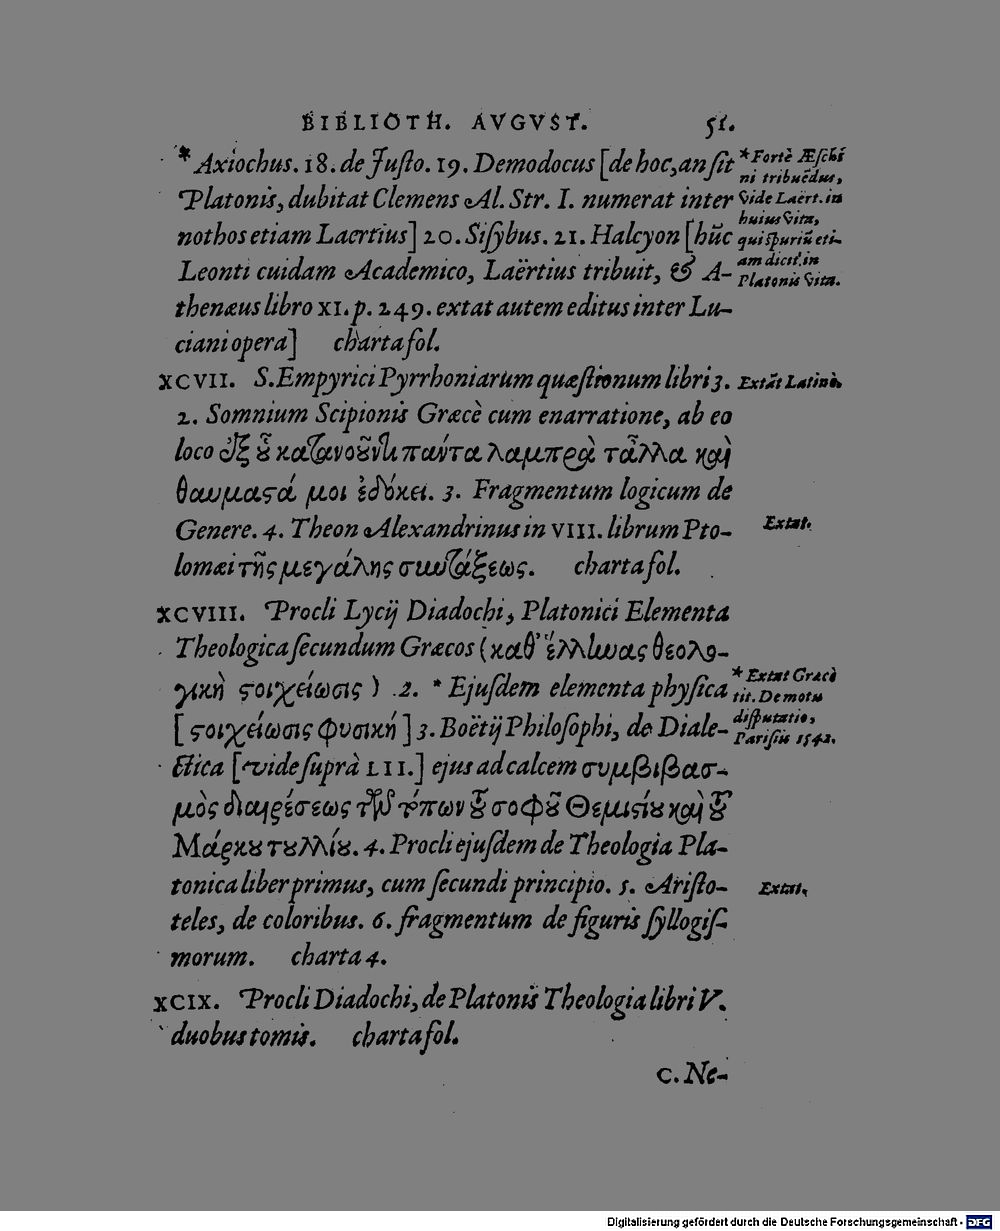 BIBLIOTH. AVGVST. 51.
* Axiochus. 18. de Justo. 19. Demodocus [de hoc, an sit
Platonis, dubitat Clemens Al. Str. I. numerat inter
nothos etiam Laertius] 20. Sisybus. 21. Halcyon [hūc
Leonti cuidam Academico, Laërtius tribuit, & A-
thenæus libro XI. p. 249. extat autem editus inter Lu-
ciani opera] charta fol.
* Fortè Æschi
ni tribuēdus,
vide Laërt. in
huius vita,
qui spuriū eti-
am dicit, in
Platonis vita.
XCVII. S. Empyrici Pyrrhoniarum quæstionum libri 3.
Extāt Latinè.
2. Somnium Scipionis Græcè cum enarratione, ab eo
loco ἐξ οὗ κατανοοῦντι πάντα λαμπρὰ τἆλλα καὶ
θαυμαστά μοι ἐδόκει. 3. Fragmentum logicum de
Genere. 4. Theon Alexandrinus in VIII. librum Pto-
Extat.
lomæi τῆς μεγάλης συντάξεως. charta fol.
XCVIII. Procli Lycij Diadochi, Platonici Elementa
Theologica secundum Græcos (καθ' ἕλληνας θεολο-
γικὴ στοιχείωσις) .2. * Ejusdem elementa physica
[στοιχείωσις φυσική] 3. Boëtij Philosophi, de Diale-
* Extat Græcè
tit. De motu
disputatio,
Parisiis 1542.
ctica [vide suprà LII.] ejus ad calcem συμβιβασ-
μὸς διαιρέσεως τῶν τόπων τοῦ σοφοῦ Θεμιστίου καὶ τοῦ
Μάρκου τουλλίου. 4. Procli ejusdem de Theologia Pla-
tonica liber primus, cum secundi principio. 5. Aristo-
Extat.
teles, de coloribus. 6. fragmentum de figuris syllogis-
morum. charta 4.
XCIX. Procli Diadochi, de Platonis Theologia libri V.
duobus tomis. charta fol.
C. Ne-
Digitalisierung gefördert durch die Deutsche Forschungsgemeinschaft - DFG